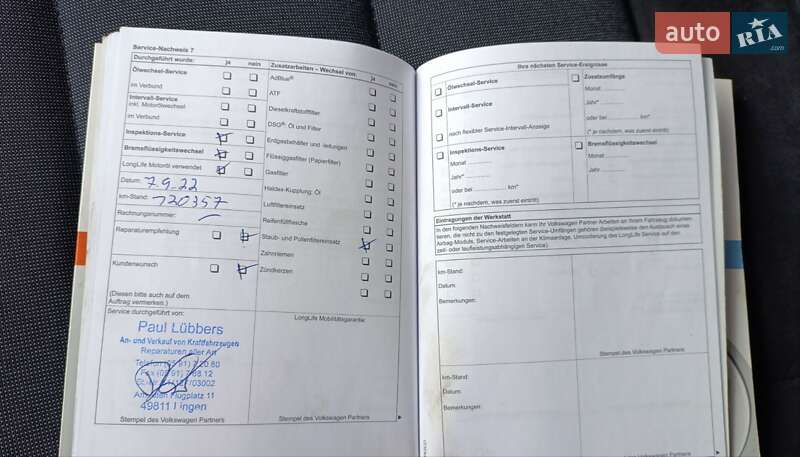 auto RIA.com
Service-Nachweis 7
Durchgeführt wurde: ja nein
Ölwechsel-Service
im Verbund
Intervall-Service
inkl. Motorölwechsel
im Verbund
Inspektions-Service
Bremsflüssigkeitswechsel
LongLife Motoröl verwendet
Datum: 7.9.22
km-Stand: 120357
Rechnungsnummer:
Reparaturempfehlung
Kundenwunsch
(Diesen bitte auch auf dem
Auftrag vermerken.)
Zusatzarbeiten – Wechsel von: ja nein
AdBlue®
ATF
Dieselkraftstofffilter
DSG®: Öl und Filter
Erdgasbehälter und -leitungen
Flüssiggasfilter (Papierfilter)
Gasfilter
Haldex-Kupplung: Öl
Luftfiltereinsatz
Reifenfüllflasche
Staub- und Pollenfiltereinsatz
Zahnriemen
Zündkerzen
Service durchgeführt von:
Paul Lübbers
An- und Verkauf von Kraftfahrzeugen
Reparaturen aller Art
Flugplatz 11
49811 Lingen
Stempel des Volkswagen Partners
LongLife Mobilitätsgarantie:
Ihre nächsten Service-Ereignisse
Ölwechsel-Service
Intervall-Service
nach flexibler Service-Intervall-Anzeige
Zusatzumfänge
Monat
Jahr*
oder bei km*
(* je nachdem, was zuerst eintritt)
Inspektions-Service
Monat
Jahr*
oder bei km*
(* je nachdem, was zuerst eintritt)
Bremsflüssigkeitswechsel
Monat
Jahr
Eintragungen der Werkstatt
In den folgenden Nachweisfeldern kann Ihr Volkswagen Partner Arbeiten an Ihrem Fahrzeug dokumen-
tieren, die nicht zu den festgelegten Service-Umfängen gehören (beispielsweise den Austausch eines
Airbag-Moduls, Service-Arbeiten an der Klimaanlage, Umcodierung des LongLife Service auf den
zeit- oder laufleistungsabhängigen Service).
km-Stand:
Datum:
Bemerkungen:
Stempel des Volkswagen Partners
km-Stand:
Datum:
Bemerkungen:
Stempel des Volkswagen Partners